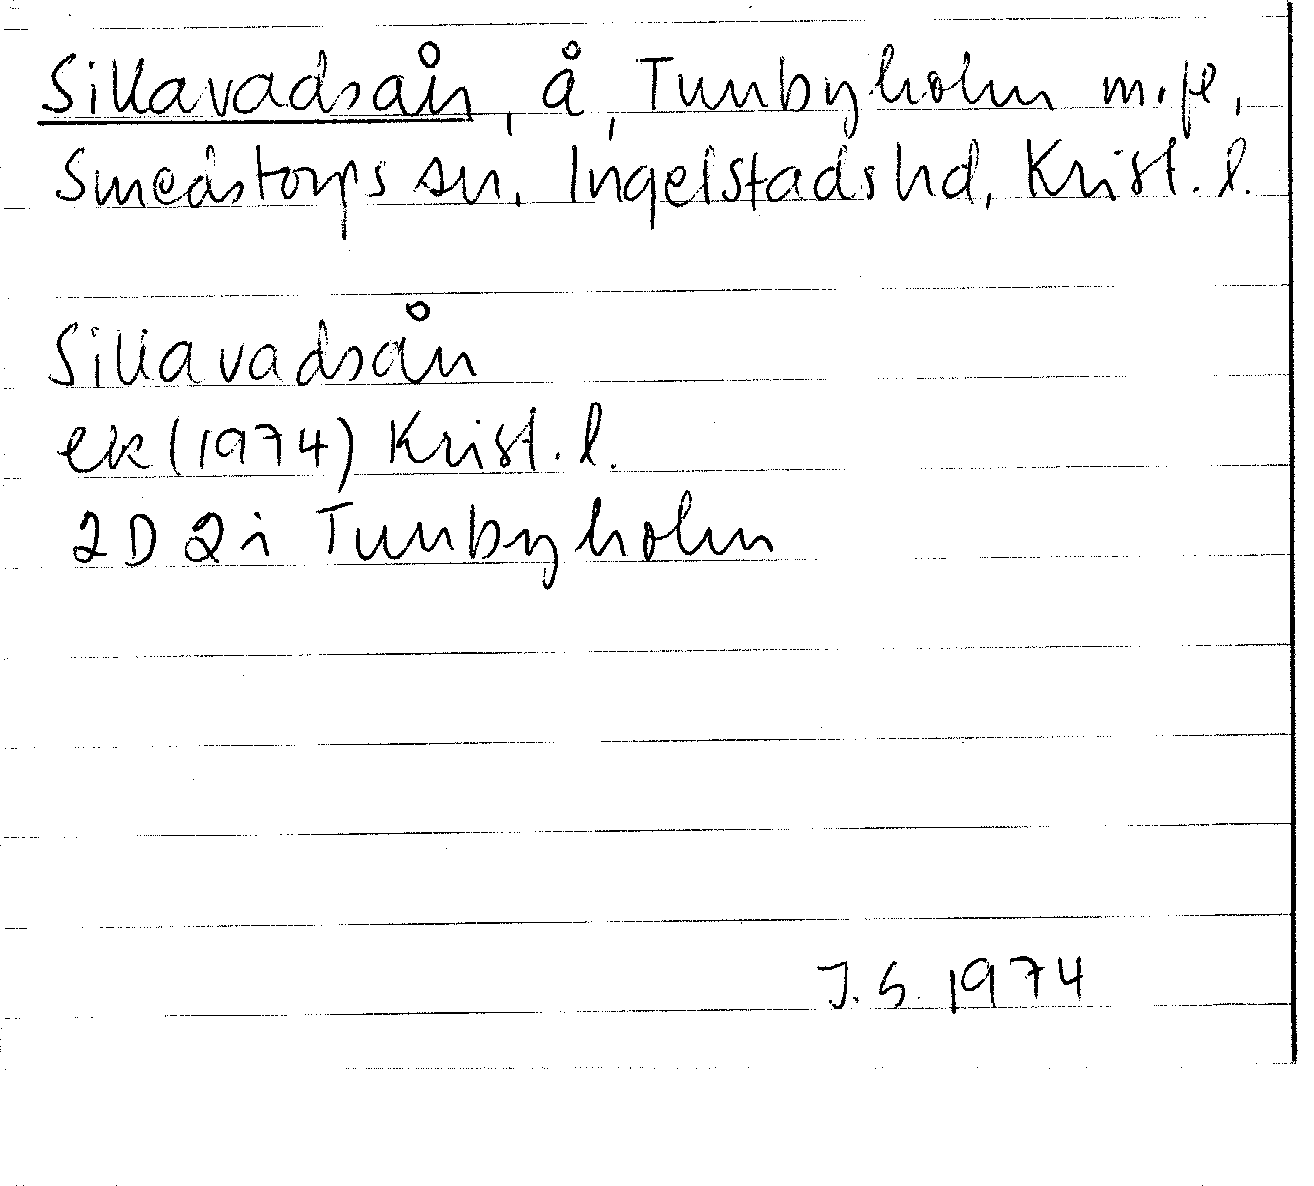 Sillavadsån, å, Tunbyholm m. fl.,
Smedstorps sn, Ingelstads hd, Krist. l.
Sillavadsån
ek (1974) Krist. l.
2D 2i Tunbyholm
J.S. 1974